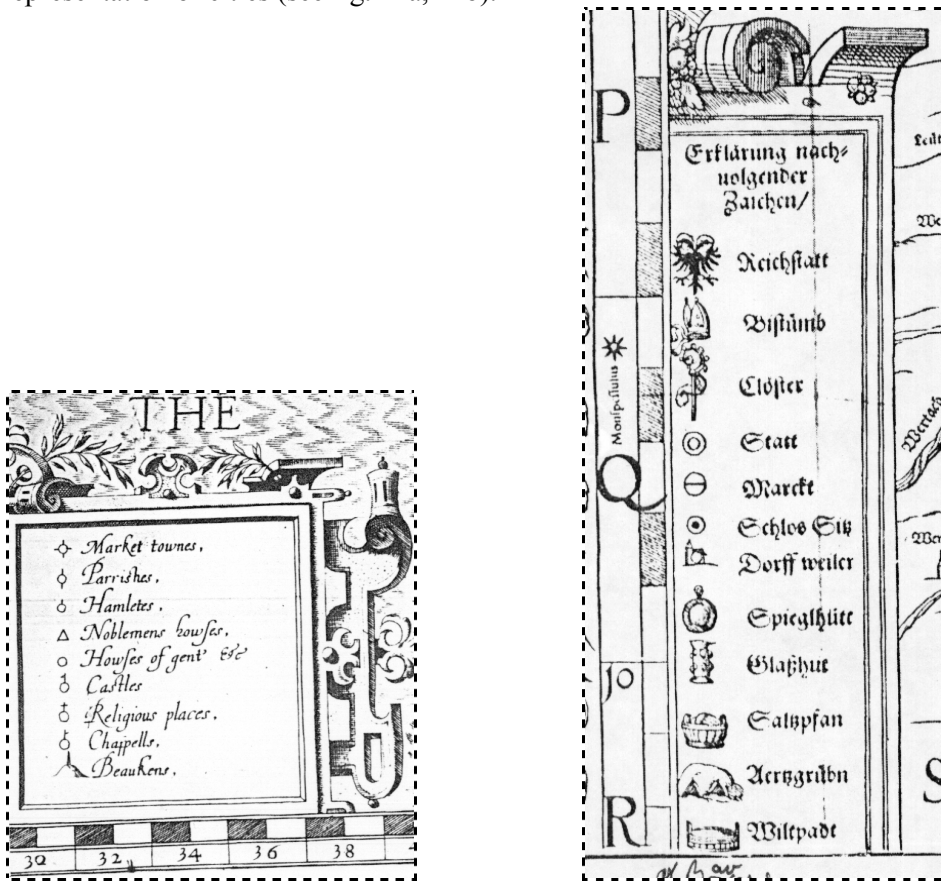 THE
Market townes.
Parrishes.
Hamletes.
Noblemens howses.
Howses of gent' &c
Castles
Religious places.
Chappells.
Beaukens.
30 32 34 36 38
P
Erklärung nach⸗
uolgender
Zaichen/
Reichstatt
Bistumb
Clöster
Statt
Marckt
Schlos Sitz
Dorff weiler
Spieglhütt
Glaßhut
Saltzpfan
Aertzgrůbn
Wiltpadt
Q
10
R
S
Wertach